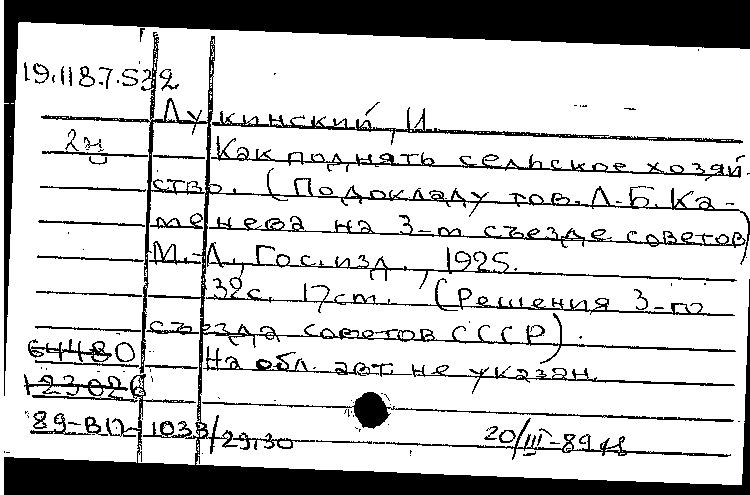 19.1187.532
Лукинский, И.
2н Как поднять сельское хозяй-
ство. (По докладу тов. Л.Б. Ка-
менева на 3-м съезде советов)
М.-Л., Гос. изд., 1925.
32с. 17cm. (Решения 3-го
съезда советов СССР).
64480 На обл. авт. не указан.
123026
89-ВП-1033/29,30 20/III-89